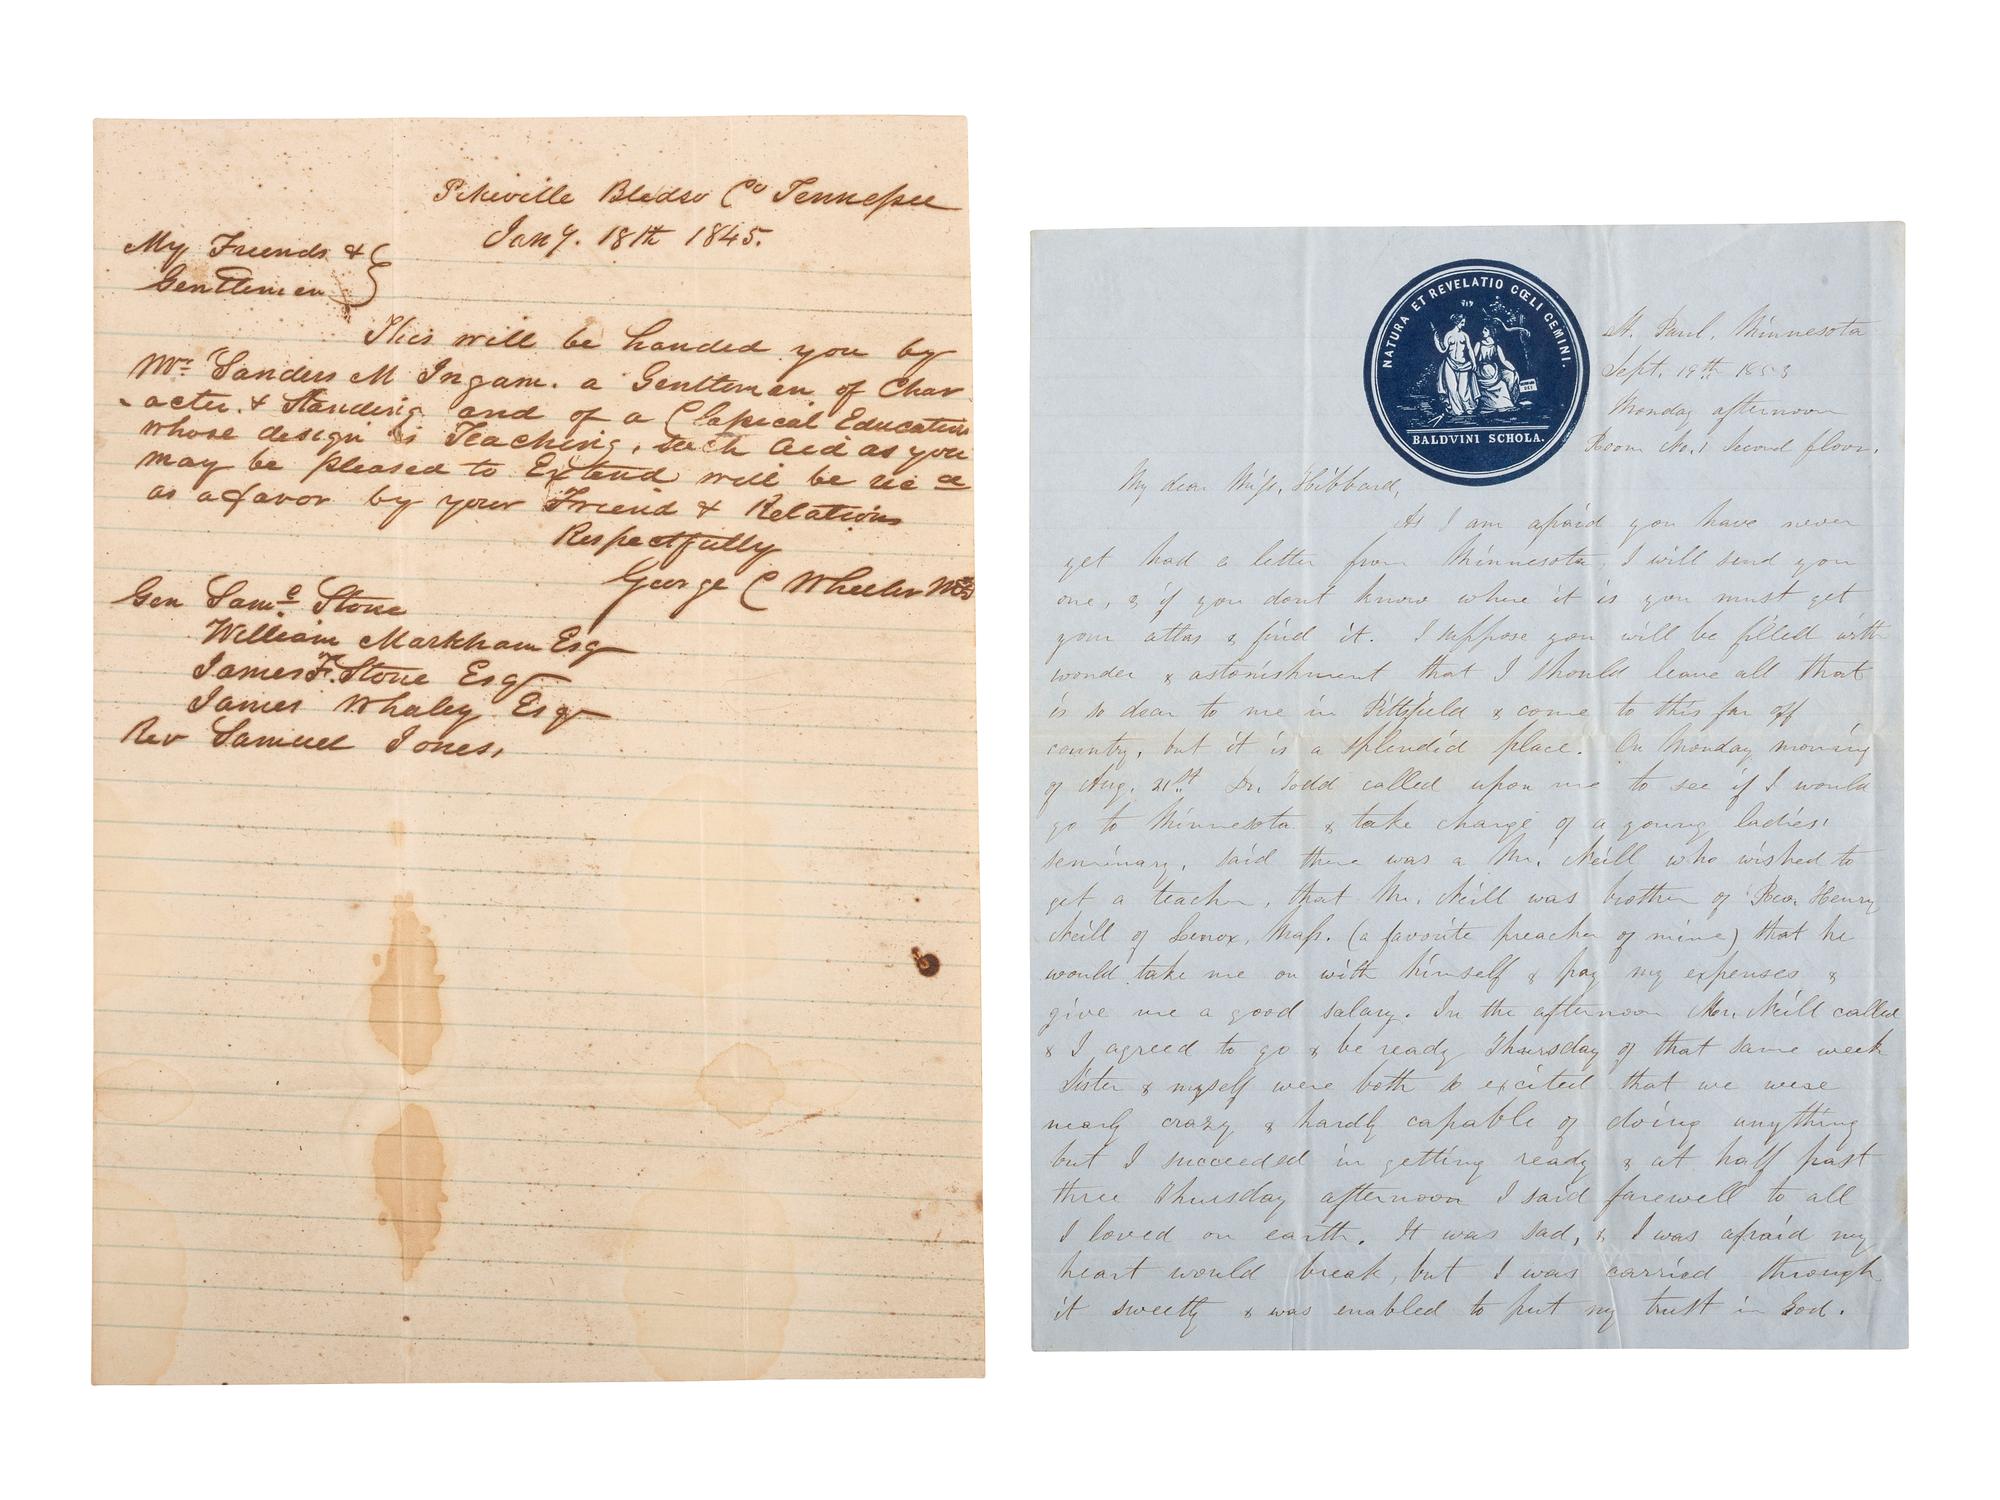 Pikeville Bledso Co Tennessee
Jany. 18th 1845.
My Friends &
Gentlemen
This will be handed you by
Mr. Sanders M Ingam. a Gentleman of Char
acter. & Standing and of a Classical Education
whose design is Teaching, such aid as you
may be pleased to Extend will be
as a favor by your Friend & Relations
Respectfully
George C Wheeler
Gen Saml Stone
William Markham Esq
James F. Stone Esq
James Whaley Esq
Rev Samuel Jones,
NATURA ET REVELATIO CŒLI GEMINI.
BALDVINI SCHOLA.
St. Paul, Minnesota
Sept. 19th 1853
Monday afternoon
Room No. 1 Second floor.
My dear Miss. Hibbard,
As I am afraid you have never
yet had a letter from Minnesota, I will send you
one, & if you dont know where it is you must get
your atlas & find it. I suppose you will be filled with
wonder & astonishment that I should leave all that
is so dear to me in Pittsfield & come to this far off
country, but it is a splendid place. On Monday morning
of Aug. 21st Dr. Todd called upon me to see if I would
go to Minnesota & take charge of a young ladies'
seminary, said there was a Mr. Neill who wished to
get a teacher, that Mr. Neill was brother of Rev. Henry
Neill of Lenox, Mass. (a favorite preacher of mine) that he
would take me on with himself & pay my expenses &
give me a good salary. In the afternoon Mr. Neill called
& I agreed to go & be ready Thursday of that same week
Sister & myself were both so excited that we were
nearly crazy & hardly capable of doing anything
but I succeeded in getting ready & at half past
three Thursday afternoon I said farewell to all
I loved on earth. It was sad, & I was afraid my
heart would break, but I was carried through
it sweetly & was enabled to put my trust in God.